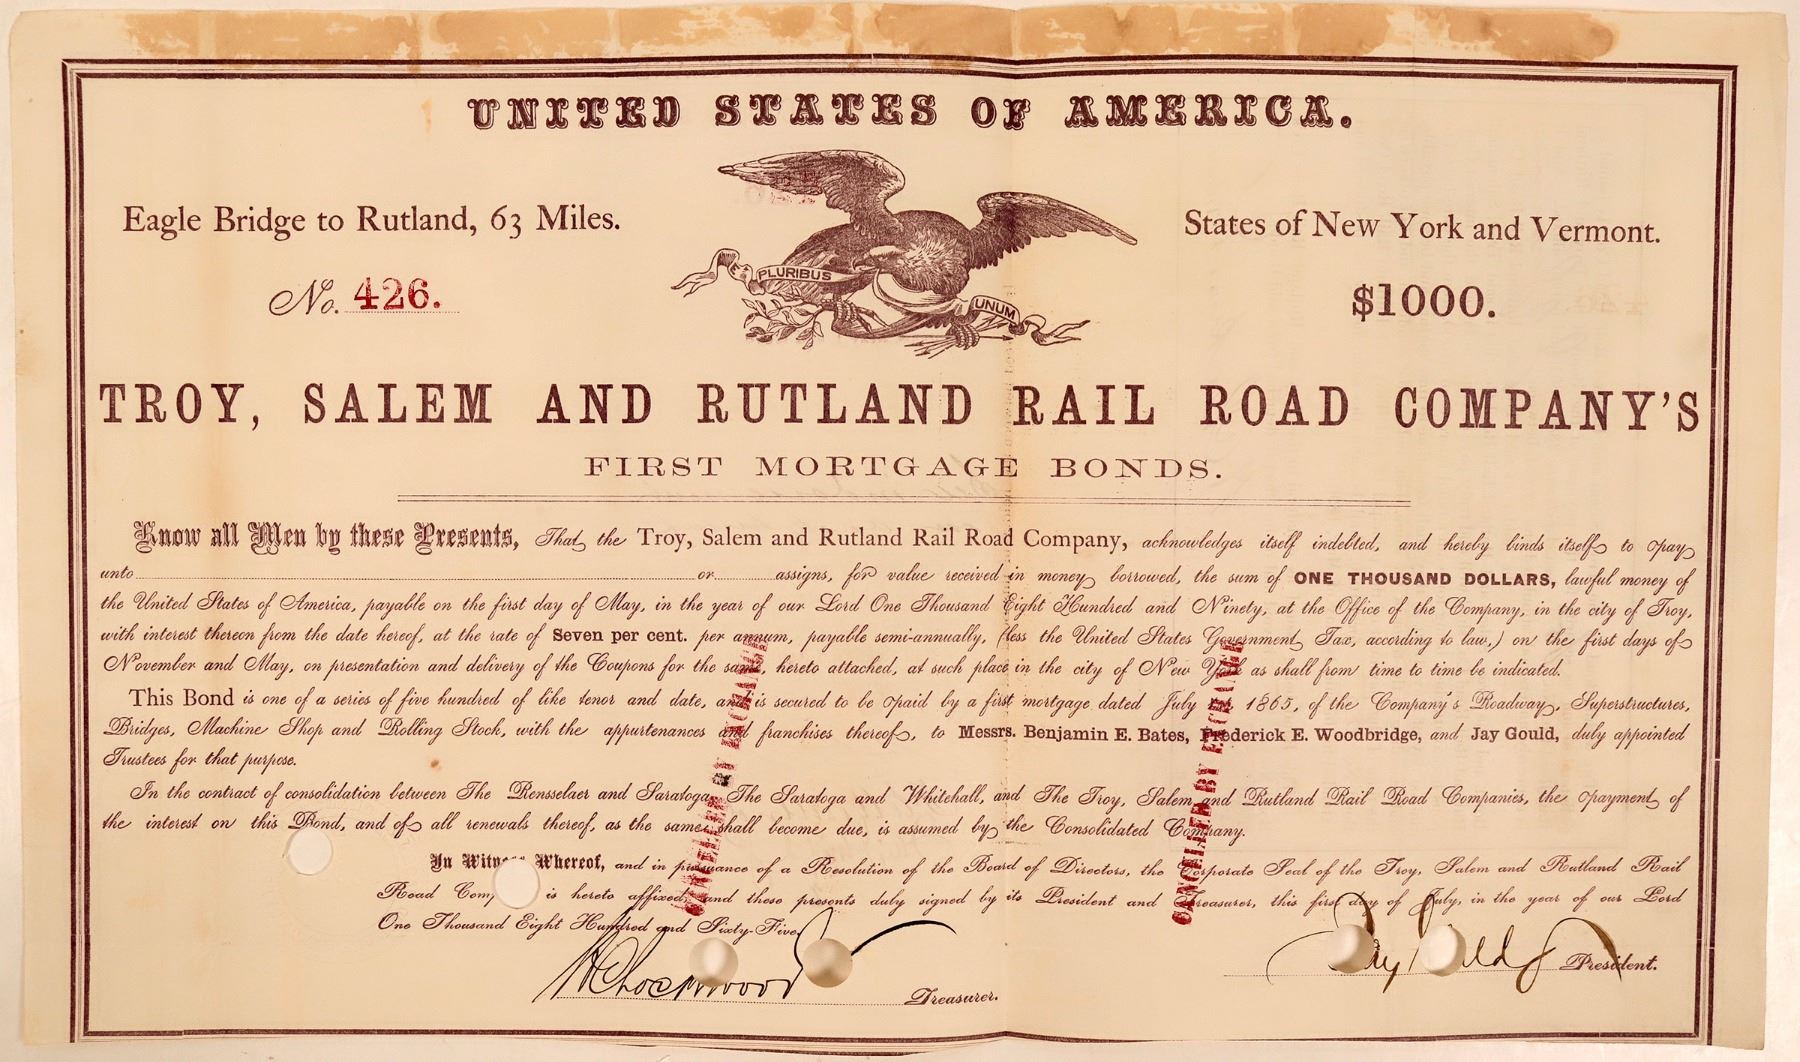 UNITED STATES OF AMERICA.
Eagle Bridge to Rutland, 63 Miles.
States of New York and Vermont.
E PLURIBUS
UNUM
No. 426.
$1000.
TROY, SALEM AND RUTLAND RAIL ROAD COMPANY'S
FIRST MORTGAGE BONDS.
Know all Men by these Presents, That the Troy, Salem and Rutland Rail Road Company, acknowledges itself indebted, and hereby binds itself to pay
unto or assigns, for value received in money borrowed, the sum of ONE THOUSAND DOLLARS, lawful money of
the United States of America, payable on the first day of May, in the year of our Lord One Thousand Eight Hundred and Ninety, at the Office of the Company, in the city of Troy,
with interest thereon from the date hereof, at the rate of Seven per cent. per annum, payable semi-annually, (less the United States Government Tax, according to law,) on the first days of
November and May, on presentation and delivery of the Coupons for the same, hereto attached, at such place in the city of New York as shall from time to time be indicated.
This Bond is one of a series of five hundred of like tenor and date, and is secured to be paid by a first mortgage dated July 1865, of the Company's Roadway, Superstructures,
Bridges, Machine Shop and Rolling Stock, with the appurtenances and franchises thereof, to Messrs. Benjamin E. Bates, Frederick E. Woodbridge, and Jay Gould, duly appointed
Trustees for that purpose.
In the contract of consolidation between The Rensselaer and Saratoga, The Saratoga and Whitehall, and The Troy, Salem and Rutland Rail Road Companies, the payment of
the interest on this Bond, and of all renewals thereof, as the same shall become due, is assumed by the Consolidated Company.
In Witness Whereof, and in pursuance of a Resolution of the Board of Directors, the Corporate Seal of the Troy, Salem and Rutland Rail
Road Comp is hereto affixed, and these presents duly signed by its President and Treasurer, this first day of July, in the year of our Lord
One Thousand Eight Hundred and Sixty-Five.
CANCELLED BY EXCHANGE
CANCELLED BY EXCHANGE
Lockwood Treasurer.
Jay Gould President.